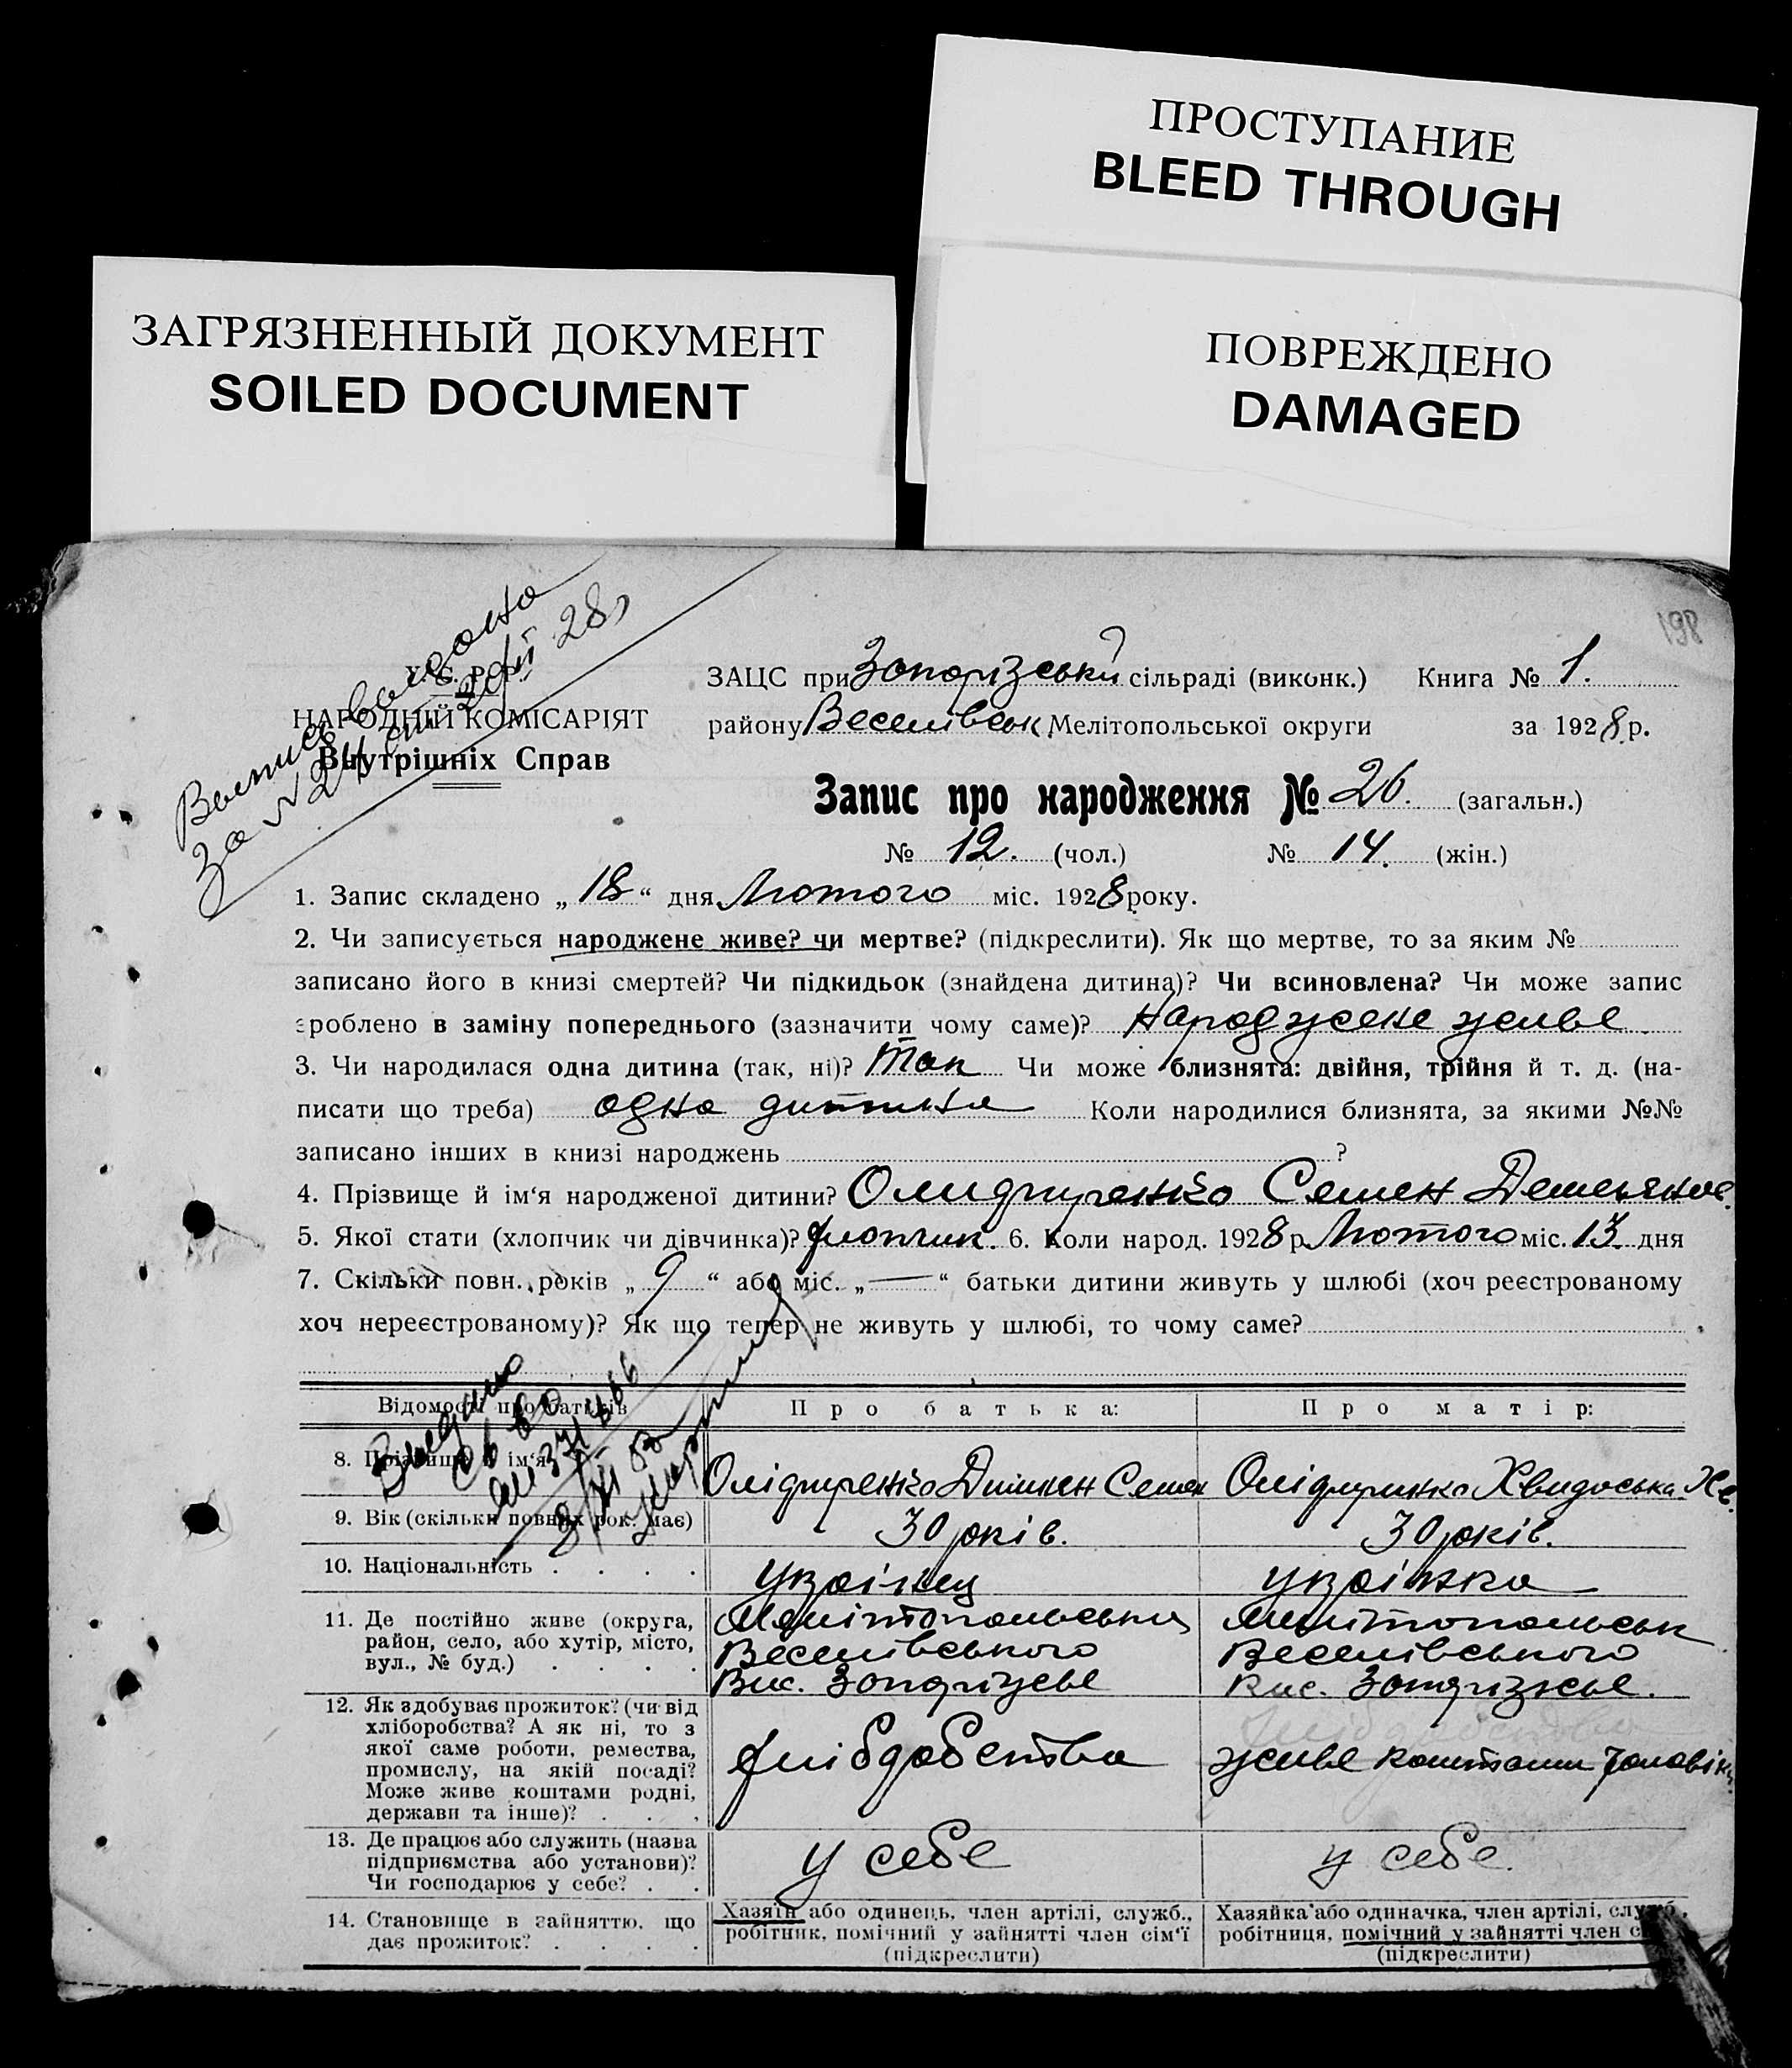 ПРОСТУПАНИЕ
BLEED THROUGH
ЗАГРЯЗНЕННЫЙ ДОКУМЕНТ
SOILED DOCUMENT
ПОВРЕЖДЕНО
DAMAGED
198
за № 24
28
У. С. Р. Р.
НАРОДНІЙ КОМІСАРІЯТ
Внутрішніх Справ
ЗАЦС при Запорізській сільраді (виконк.) Книга № 1.
району Веселівськ Мелітопольської округи за 1928 р.
Запис про народження № 26. (загальн.)
№ 12. (чол.) № 14. (жін.)
1. Запис складено „18“ дня Лютого міс. 1928 року.
2. Чи записується народжене живе? чи мертве? (підкреслити). Як що мертве, то за яким №
записано його в книзі смертей? Чи підкидьок (знайдена дитина)? Чи всиновлена? Чи може запис
зроблено в заміну попереднього (зазначити чому саме)? Народжене живе
3. Чи народилася одна дитина (так, ні)? Так Чи може близнята: двійня, трійня й т. д. (на-
писати що треба) одна дитина Коли народилися близнята, за якими №№
записано інших в книзі народжень ?
4. Прізвище й ім‘я народженої дитини? Семен
5. Якої стати (хлопчик чи дівчинка)? хлопчик. 6. Коли народ. 1928 р Лютого міс. 13. дня
7. Скільки повн. років „9“ або міс. „—“ батьки дитини живуть у шлюбі (хоч реєстрованому
хоч нереєстрованому)? Як що тепер не живуть у шлюбі, то чому саме?
Відомості про батьків
Про батька:
Про матір:
8. Прізвище й ім‘я
9. Вік (скільки повних рок. має)
30 років.
30 років.
10. Національність . . . .
Українец
українка
11. Де постійно живе (округа,
район, село, або хутір, місто,
вул., № буд.) . . . .
Веселівського
Веселівського
12. Як здобуває прожиток? (чи від
хліборобства? А як ні, то з
якої саме роботи, ремества,
промислу, на якій посаді?
Може живе коштами родні,
держави та інше)? . . .
живе коштами
13. Де працює або служить (назва
підприємства або установи)?
Чи господарює у себе? . .
у себе
у себе.
14. Становище в зайняттю, що
дає прожиток? . . . .
Хазяїн або одинець, член артілі, служб.,
робітник, помічний у зайнятті член сім‘ї
(підкреслити)
Хазяйка або одиначка, член артілі, служб.,
робітниця, помічний у зайнятті член
(підкреслити)